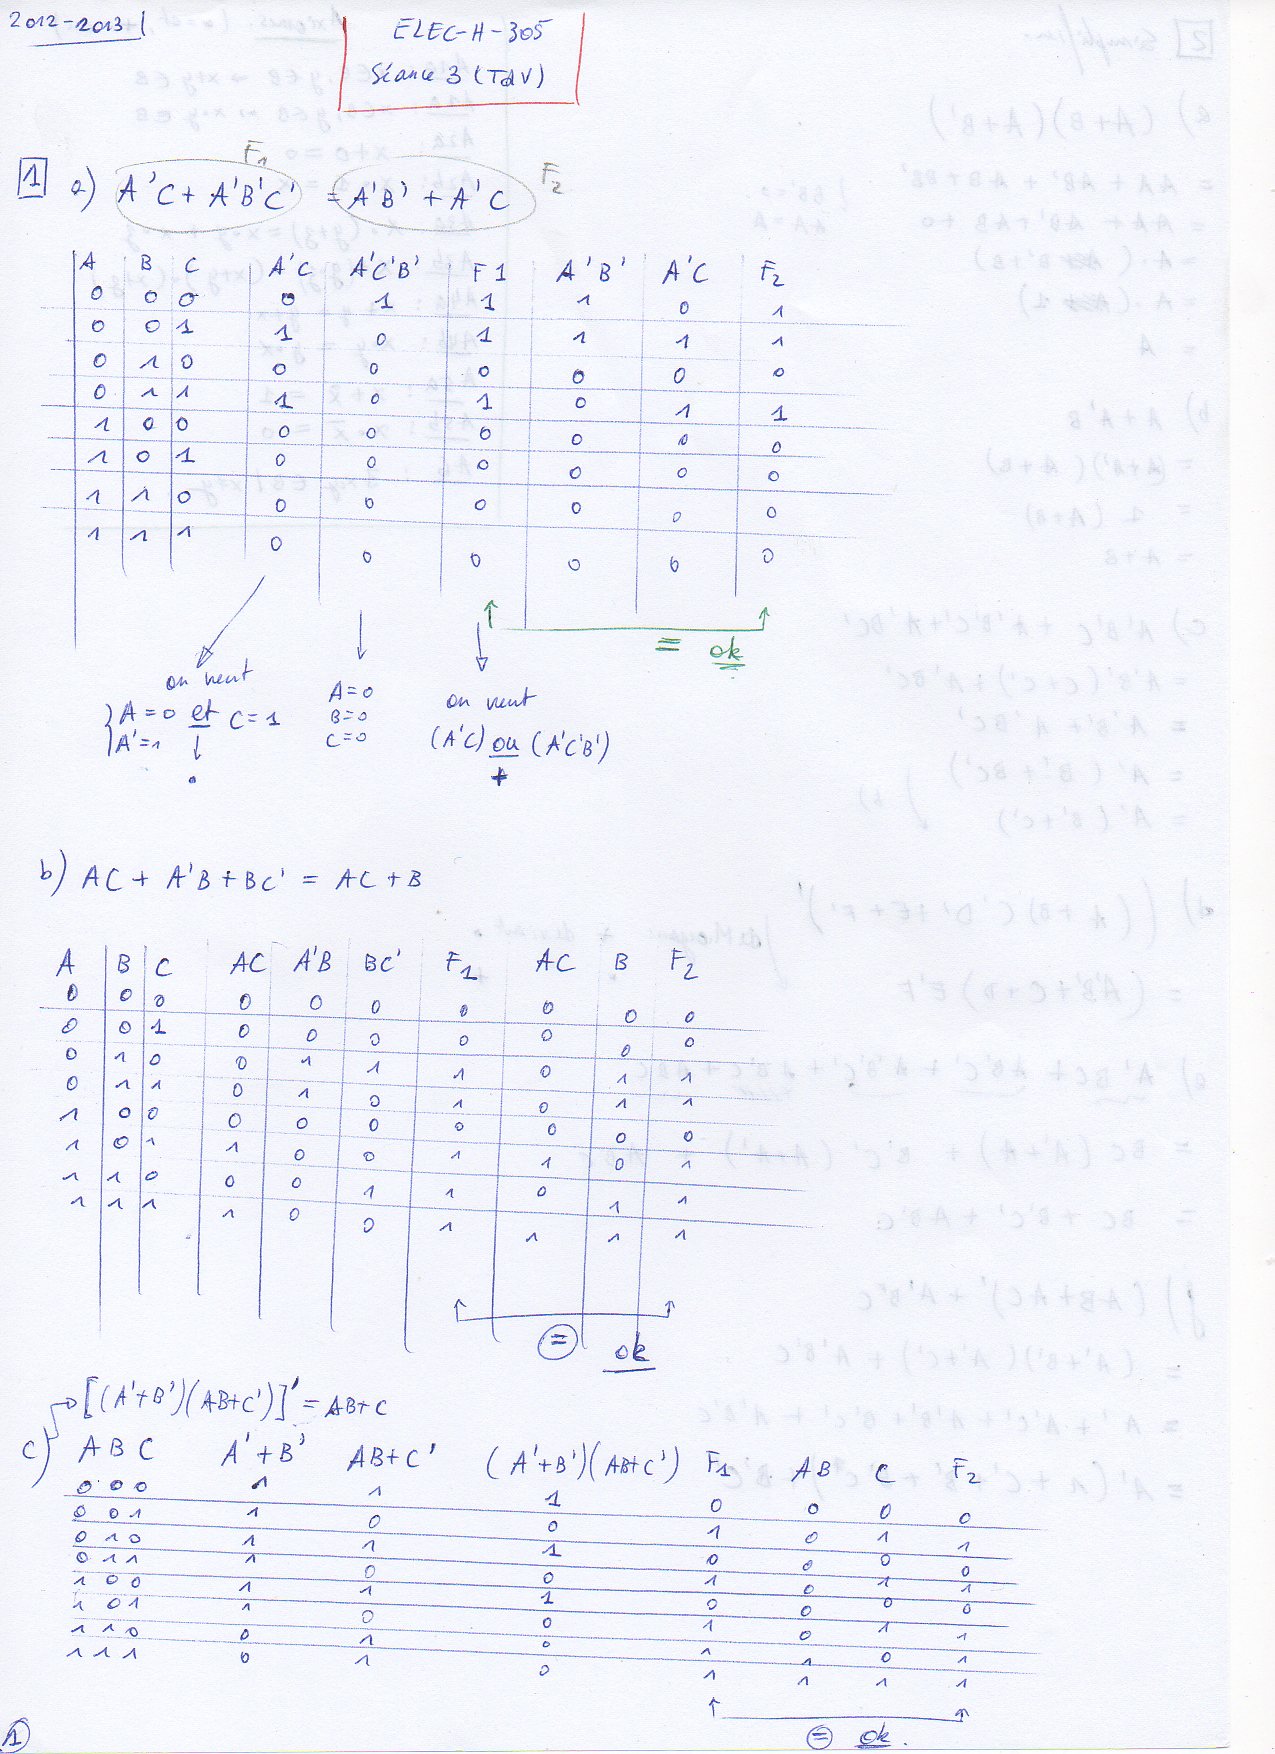 2012-2013
ELEC-H-305
Séance 3 (TdV)
F1
F2
1 a) A'C + A'B'C' = A'B' + A'C
A B C A'C A'C'B' F1 A'B' A'C F2
0 0 0 0 1 1 1 0 1
0 0 1 1 0 1 1 1 1
0 1 0 0 0 0 0 0 0
0 1 1 1 0 1 0 1 1
1 0 0 0 0 0 0 0 0
1 0 1 0 0 0 0 0 0
1 1 0 0 0 0 0 0 0
1 1 1 0 0 0 0 0 0
= ok
on veut
A=0 et C=1
A'=1
.
A=0
B=0
C=0
on veut
(A'C) ou (A'C'B')
+
b) AC + A'B + BC' = AC + B
A B C AC A'B BC' F1 AC B F2
0 0 0 0 0 0 0 0 0 0
0 0 1 0 0 0 0 0 0 0
0 1 0 0 1 1 1 0 1 1
0 1 1 0 1 0 1 0 1 1
1 0 0 0 0 0 0 0 0 0
1 0 1 1 0 0 1 1 0 1
1 1 0 0 0 1 1 0 1 1
1 1 1 1 0 0 1 1 1 1
= ok
[(A'+B')(AB+C')]' = AB+C
c) A B C A'+B' AB+C' (A'+B')(AB+C') F1 AB C F2
0 0 0 1 1 1 0 0 0 0
0 0 1 1 0 0 1 0 1 1
0 1 0 1 1 1 0 0 0 0
0 1 1 1 0 0 1 0 1 1
1 0 0 1 1 1 0 0 0 0
1 0 1 1 0 0 1 0 1 1
1 1 0 0 1 0 1 1 0 1
1 1 1 0 1 0 1 1 1 1
= ok.
1